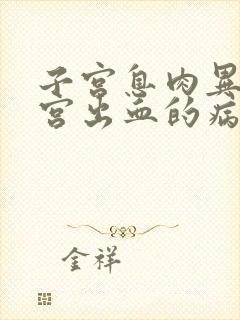 子宫息肉異
宫出血的病
金祥